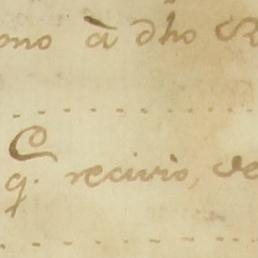 ono à dho R
q. recivio, de